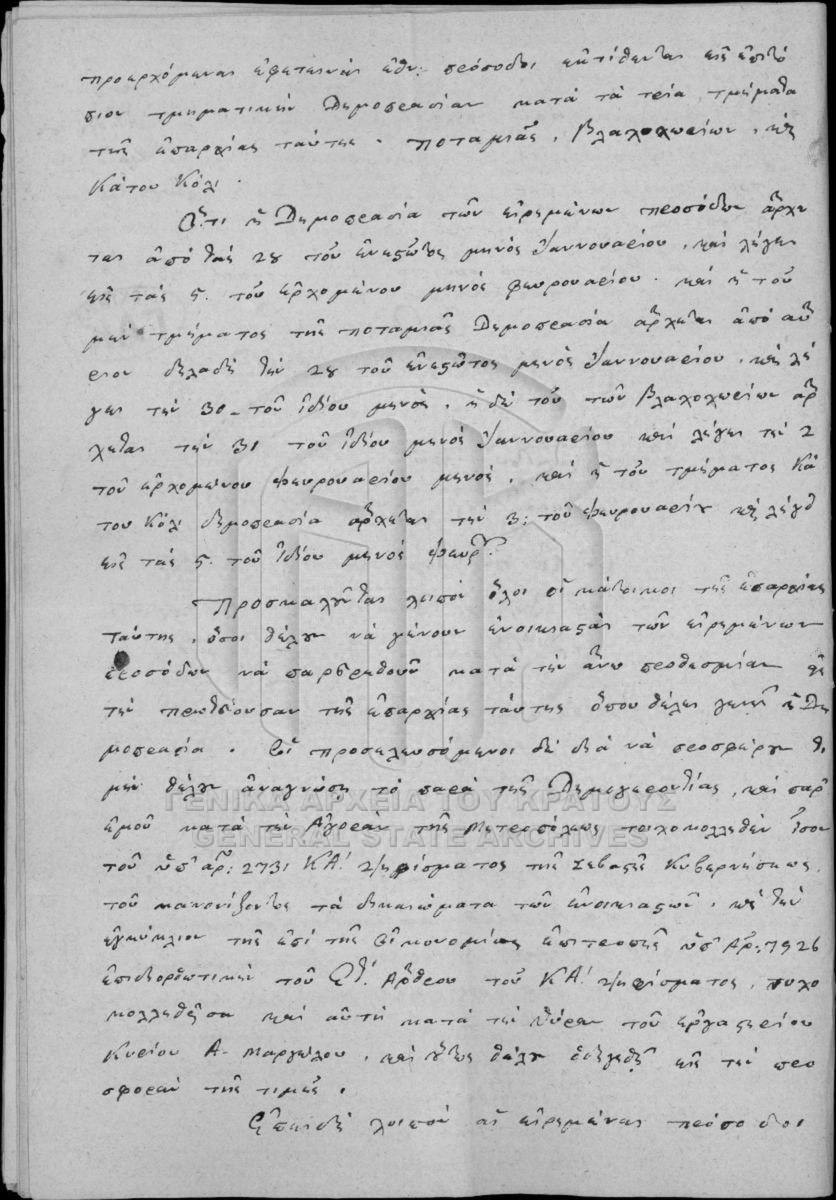 προερχόμεναι ἐφετειναὶ ἐθν: πρόσοδοι ἐκτίθενται εἰς ἐπιτό
πιον τμηματικὴν Δημοπρασίαν κατὰ τὰ τρία τμήματα
τῆς ἐπαρχίας ταύτης. Ποταμιᾶς, Βλαχοχωρίων, καὶ
Κάτου Κόλι.
Ὅτι ἡ Δημοπρασία τῶν εἰρημένων προσόδων ἄρχε
ται ἀπὸ τὰς 28 τοῦ ἐνεστῶτος μηνὸς Ἰαννουαρίου, καὶ λήγει
εἰς τὰς 5. τοῦ ἐρχομένου μηνὸς φευρουαρίου. καὶ ἡ τοῦ
μὲν τμήματος τῆς Ποταμιᾶς Δημοπρασία ἄρχεται ἀπὸ αὔ
ριον δηλαδὴ τὴν 28 τοῦ ἐνεστῶτος μηνὸς Ἰαννουαρίου, καὶ λή
γει τὴν 30 τοῦ ἰδίου μηνὸς, ἡ δὲ τοῦ τῶν Βλαχοχωρίων ἄρ
χεται τὴν 31 τοῦ ἰδίου μηνὸς Ἰαννουαρίου καὶ λήγει τὴν 2
τοῦ ἐρχομένου Φευρουαρίου μηνὸς, καὶ ἡ τοῦ τμήματος Κά
του Κόλι δημοπρασία ἄρχεται τὴν 3: τοῦ Φευρουαρίου καὶ λήγει
εἰς τὰς 5. τοῦ ἰδίου μηνὸς Φευρ:
Προσκαλοῦνται λοιπὸν ὅλοι οἱ κάτοικοι τῆς ἐπαρχίας
ταύτης, ὅσοι θέλουν νὰ γίνουν ἐνοικιασταὶ τῶν εἰρημένων
προσόδων νὰ παρευρεθοῦν κατὰ τὴν ἄνω προθεσμίαν εἰς
τὴν πρωτεύουσαν τῆς ἐπαρχίας ταύτης ὅπου θέλει γενεῖ ἡ Δη
μοπρασία. Οἱ προσελευσόμενοι δὲ διὰ νὰ προσφέρουν τι
μὴν θέλουν ἀναγνώσει τὸ παρὰ τῆς Δημογεροντίας, καὶ παρ'
ἐμοῦ κατὰ τὴν Ἀγορὰν τῆς Μητροπόλεως τοιχοκολληθὲν ἴσον
τοῦ ὑπ' ἀρ: 2731 ΚΑ! ψηφίσματος τῆς Σεβαστῆς Κυβερνήσεως,
τοῦ κανονίζοντος τὰ δικαιώματα τῶν ἐνοικιαστῶν, καὶ τὴν
ἐγκύκλιον τῆς ἐπὶ τῆς Οἰκονομίας ἐπιτροπῆς ὑπ' Ἀρ: 7926
ἐπιδιορθωτικὴν τοῦ ἄρθρου τοῦ ΚΑ! ψηφίσματος, τυχο
κολληθεῖσα καὶ αὐτὴ κατὰ τὴν θύραν τοῦ ἐργαστηρίου
Κυρίου Α. Μαργέλου, καὶ οὕτως θέλουν ὁδηγηθῆ εἰς τὴν προ
σφορὰν τῆς τιμῆς.
Ἐπειδὴ λοιπὸν αἱ εἰρημέναι πρόσοδοι
ΓΕΝΙΚΑ ΑΡΧΕΙΑ ΤΟΥ ΚΡΑΤΟΥΣ
GENERAL STATE ARCHIVES